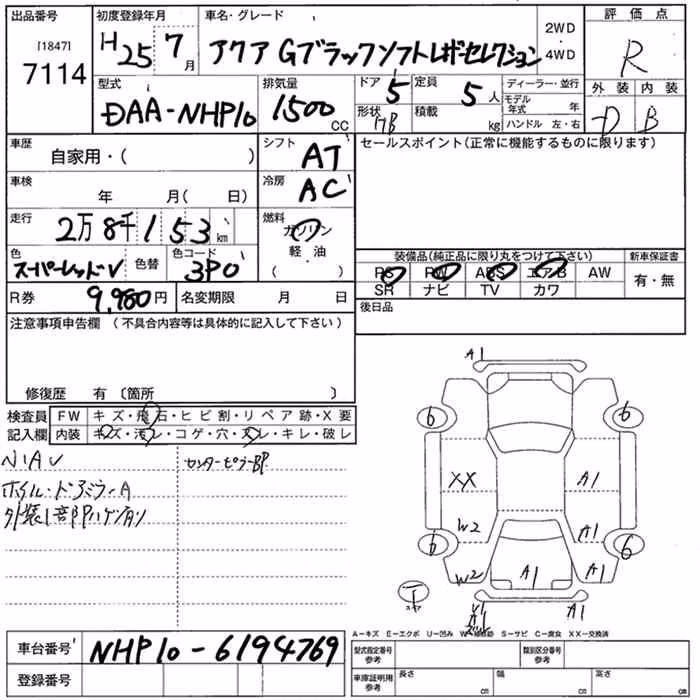 出品番号 初度登録年月 車名・グレード 2WD・4WD 評価点
[1847]
7114 H25 7月 アクア Gブラックソフトレザーセレクション R
外装 内装
D B
型式 排気量 ドア 定員 ディーラー・並行
DAA-NHP10 1500CC 5 5人 モデル年式 年
形状 積載 ハンドル 左・右
HB kg
車歴 シフト セールスポイント(正常に機能するものに限ります)
自家用・( ) AT
車検 冷房
年 月( 日) AC
走行 燃料
2万8千153km ガソリン
軽・油
( )
色 色替 色コード
スーパーレッドV 3P0
装備品(純正品に限り丸をつけて下さい) 新車保証書
PS PW ABS エアB AW 有・無
SR ナビ TV カワ
R券 9,980円 名変期限 月 日
後日品
注意事項申告欄(不具合内容等は具体的に記入して下さい)
修復歴 有〔箇所 〕
検査員記入欄
FW キズ・飛石・ヒビ割・リペア跡・X要
内装 キズ・汚レ・コゲ・穴・スレ・キレ・破レ
センターピラーBP
ホイル・ドアミラーA
外装1部Pハゲ有り
A1
6 6
XX A1
W2 A1
6 6
W2 A1 A1
A1
A1
A−キズ E−エクボ U−凹み W−補修跡 S−サビ C−腐食 XX−交換済
車台番号 NHP10-6194769
登録番号
型式指定番号 参考 類別区分番号 参考
車庫証明用 参考 長さ cm 幅 cm 高さ cm